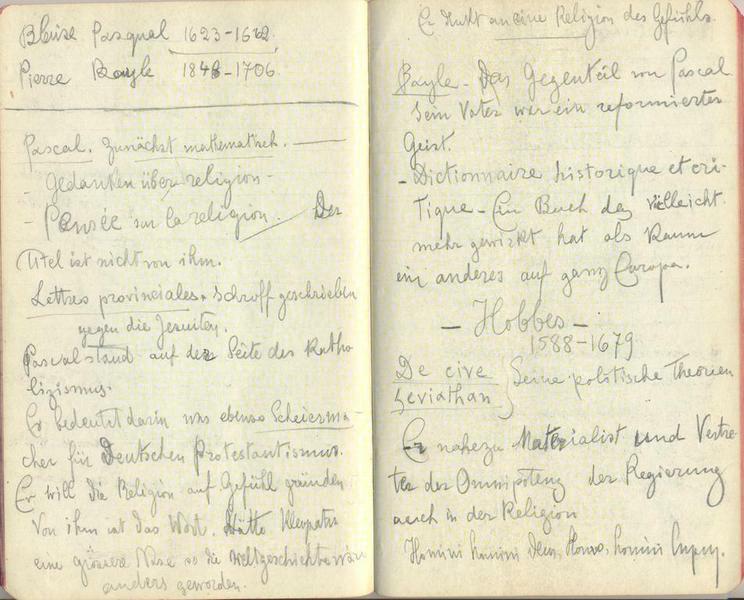 Bleise Pasqual 1623-1662
Pierre Bayle 1646-1706.
Pascal. Zunächst mathematisch. —
- Gedanken über religion -
- Pensée sur la religion. Der
Titel ist nicht von ihm.
Lettres provinciales. Schroff geschrieben
gegen die Jesuiten.
Pascal stand auf der Seite des Katho
lizismus.
Er bedeutet darin was ebenso Scheiesma-
cher für Deutschen Protestantismus.
Er will die Religion auf Gefühl gründen
Von ihm ist das Wort. Hätte Kleopatra
eine grössere Nase so die Weltgeschichte wär
anders geworden.
Er denkt an eine Religion des Gefühls.
Bayle - Das Gegenteil von Pascal
Sein Vater war ein reformierter
Geist.
- Dictionnaire historique et cri-
tique - Ein Buch das vielleicht
mehr gewirkt hat als kaum
ein anderes auf ganz Europa.
- Hobbes -
1588-1679
De cive
Leviathan } Seine politische Theorien
Er nahezu Materialist und Vertre-
ter der Omnipotenz der Regierung
auch in der Religion
Homini homini deus, Homo, homini lupus.